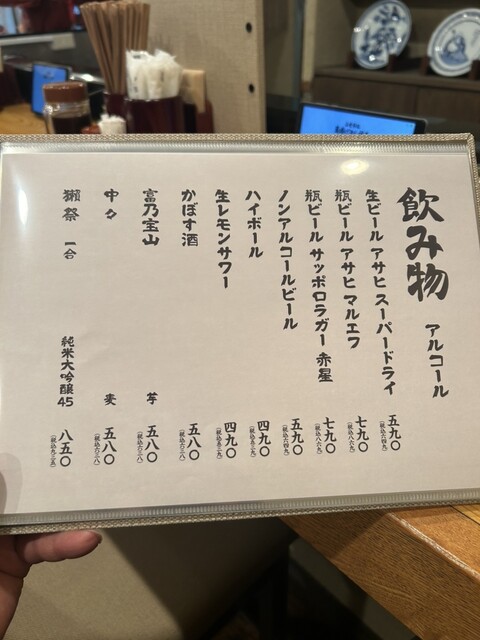 飲み物 アルコール
生ビール アサヒ スーパードライ 五九〇 (税込六四九)
瓶ビール アサヒ マルエフ 七九〇 (税込八六九)
瓶ビール サッポロラガー 赤星 七九〇 (税込八六九)
ノンアルコールビール 五九〇 (税込六四九)
ハイボール 四九〇 (税込五三九)
生レモンサワー 四九〇 (税込五三九)
かぼす酒 五八〇 (税込六三八)
富乃宝山 芋 五八〇 (税込六三八)
中々 麦 五八〇 (税込六三八)
獺祭 一合 純米大吟醸45 八五〇 (税込九三五)